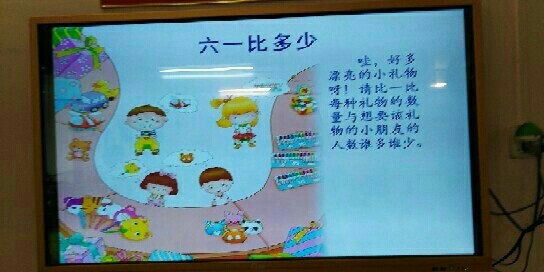 六一比多少
哇，好多
漂亮的小礼物
呀！请比一比
每种礼物的数
量与想要该礼
物的小朋友的
人数谁多谁少。